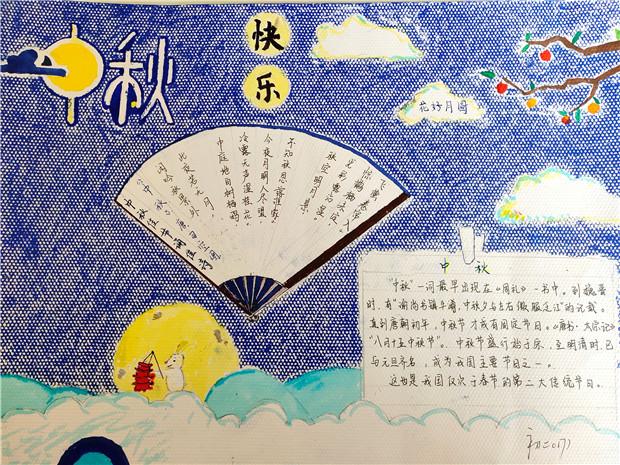 中秋
快乐
花好月圆
闲吟秋景外
此夜若无月
中庭地白树栖鸦
冷露无声湿桂花
今夜月明人尽望
不知秋思落谁家
秋空明月悬
光彩露沾湿
惊鹊栖未定
飞萤卷帘入
中 秋
"中秋"一词最早出现在《周礼》一书中。到魏晋
时,有"谕尚书镇牛渚,中秋夕与左右微服泛江"的记载。
直到唐朝初年,中秋节才成为固定节日。《唐书·太宗记》
"八月十五中秋节"。中秋节盛行始于宋,至明清时,已
与元旦齐名,成为我国主要节日之一。
这也是我国仅次于春节的第二大传统节日。
初二